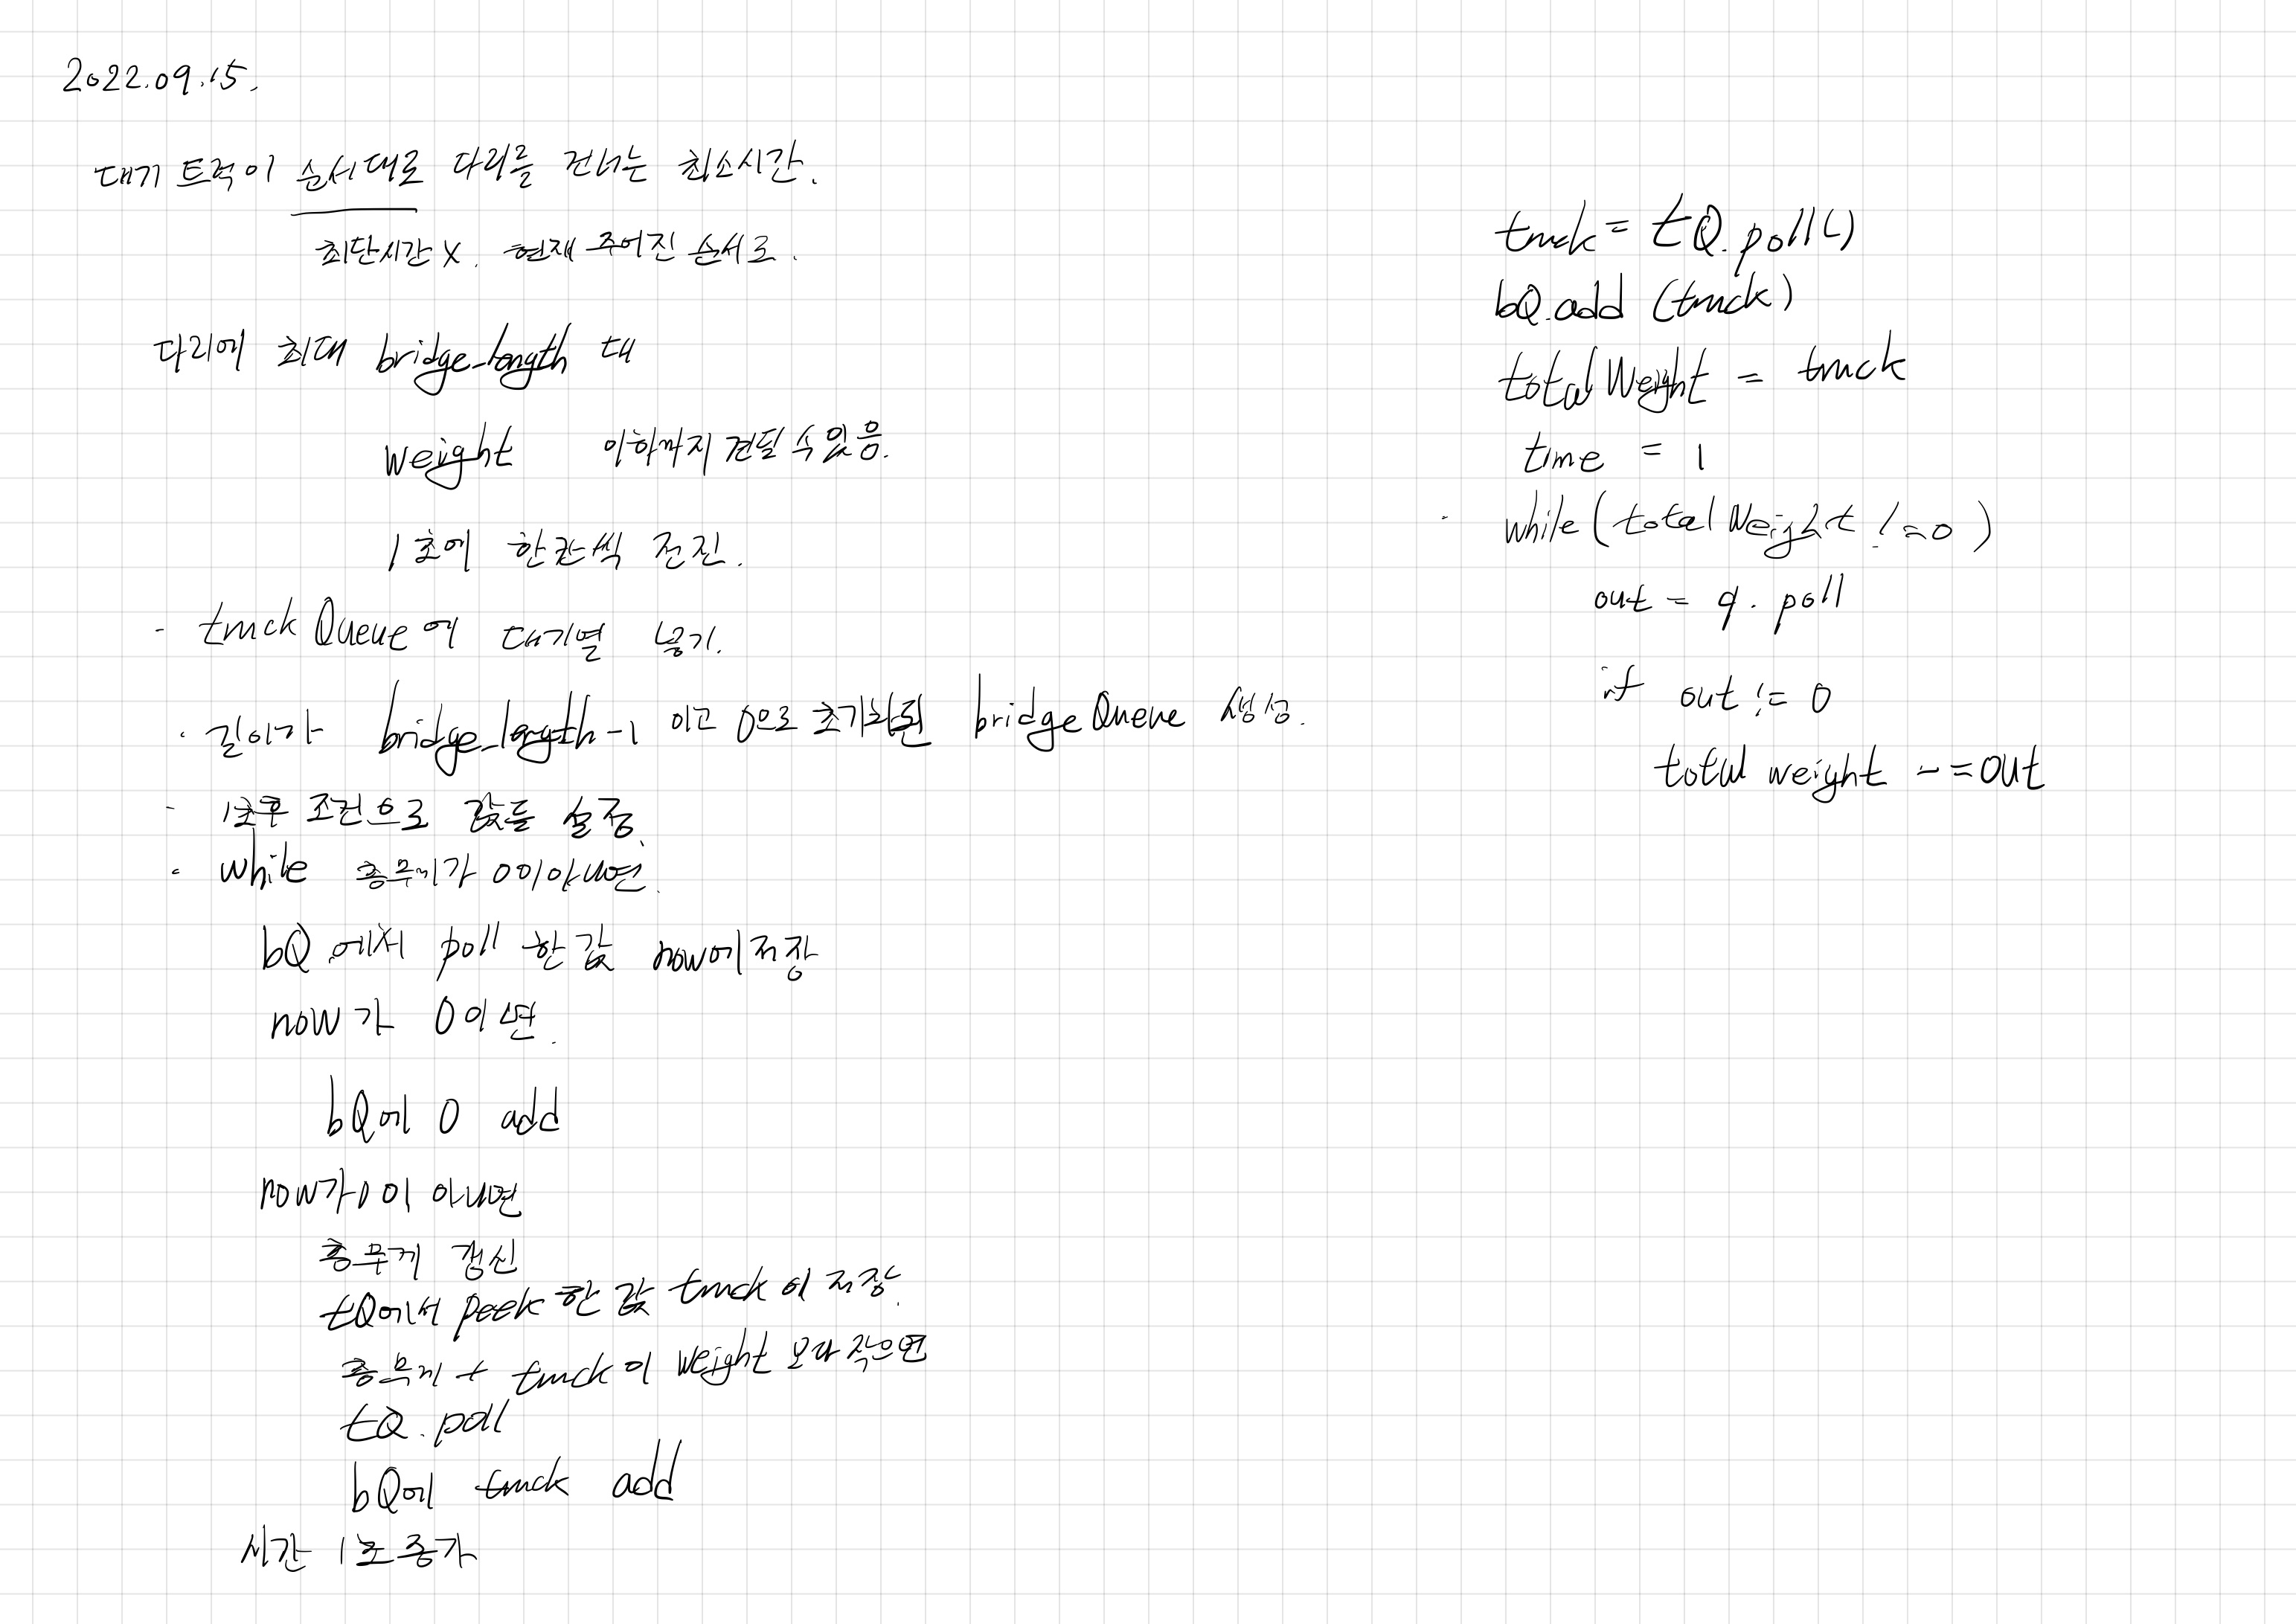 2022.09.15.
대기 트럭이 순서대로 다리를 건너는 최소시간.
최단시간 X. 현재 주어진 순서로.
다리에 최대 bridge_length 대
weight 이하까지 견딜 수 있음.
1초에 한칸씩 전진.
- truckQueue에 대기열 넣기.
· 길이가 bridge_length-1 이고 0으로 초기화된 bridgeQueue 생성.
- 1초후 조건으로 값들 설정.
· while 총무게가 0이 아니면.
bQ에서 poll 한 값 now에 저장
now가 0이면.
bQ에 0 add
now가 0이 아니면
총무게 갱신
tQ에서 peek 한 값 truck에 저장.
총무게 + truck이 weight 보다 작으면
tQ.poll
bQ에 truck add
시간 1초 증가
truck = tQ.poll()
bQ.add (truck)
totalWeight = truck
time = 1
· while (totalWeight != 0)
out = q.poll
if out != 0
total weight -= out